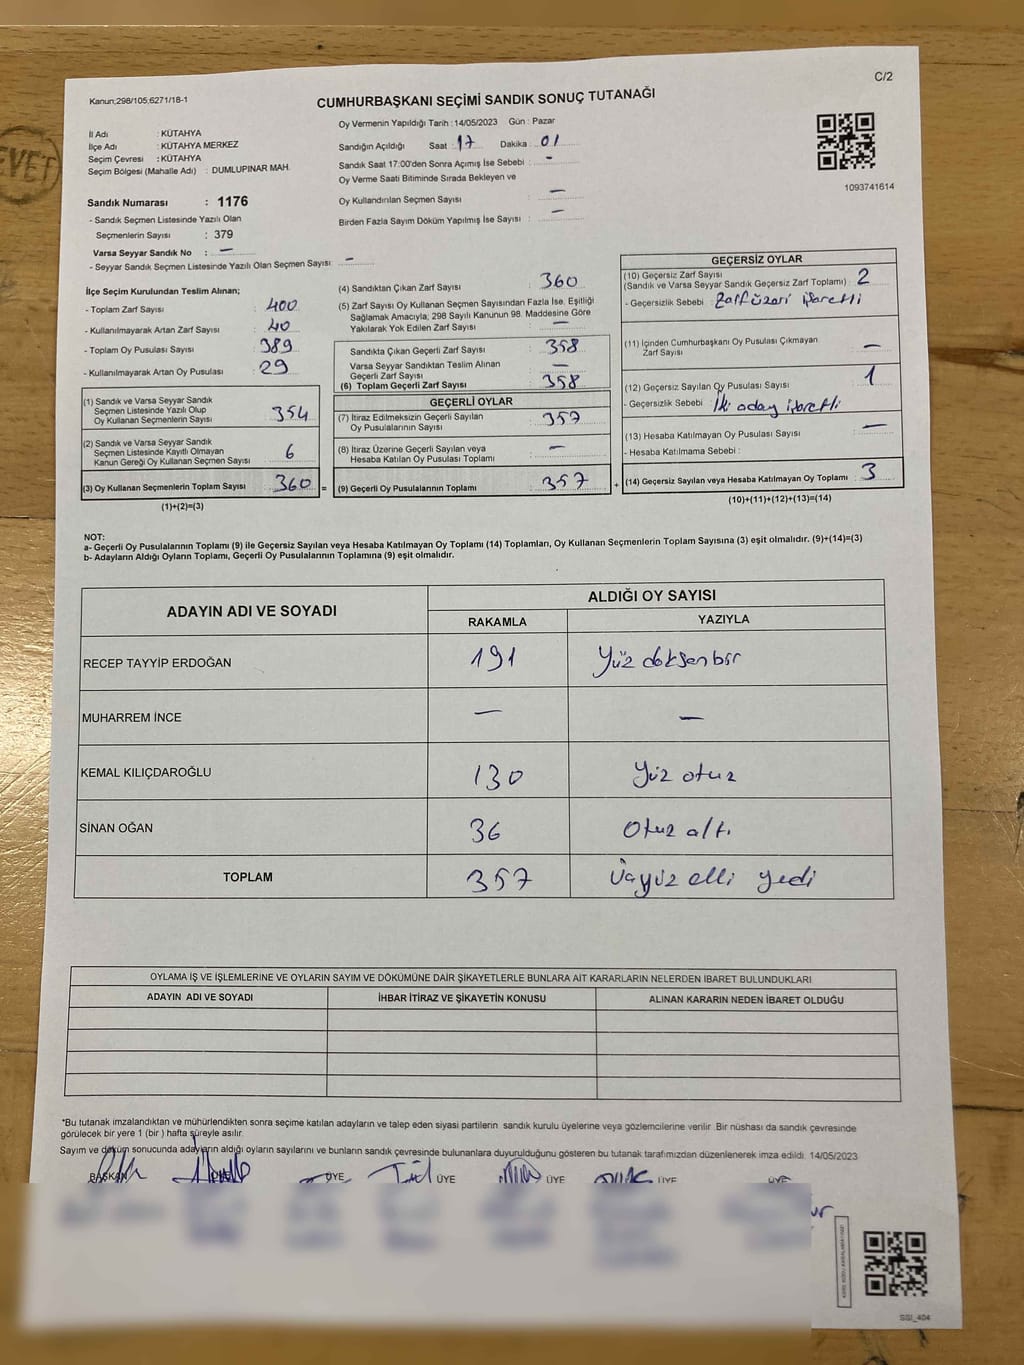 C/2
Kanun;298/105;6271/18-1
CUMHURBAŞKANI SEÇİMİ SANDIK SONUÇ TUTANAĞI
EVET
İl Adı : KÜTAHYA
İlçe Adı : KÜTAHYA MERKEZ
Seçim Çevresi : KÜTAHYA
Seçim Bölgesi (Mahalle Adı) : DUMLUPINAR MAH.
Oy Vermenin Yapıldığı Tarih : 14/05/2023 Gün : Pazar
Sandığın Açıldığı Saat : 17 Dakika : 01
Sandık Saat 17:00'den Sonra Açımış İse Sebebi : -
Oy Verme Saati Bitiminde Sırada Bekleyen ve
Oy Kullandırılan Seçmen Sayısı : -
Birden Fazla Sayım Döküm Yapılmış İse Sayısı : -
1093741614
Sandık Numarası : 1176
- Sandık Seçmen Listesinde Yazılı Olan
Seçmenlerin Sayısı : 379
Varsa Seyyar Sandık No : -
- Seyyar Sandık Seçmen Listesinde Yazılı Olan Seçmen Sayısı: -
İlçe Seçim Kurulundan Teslim Alınan;
- Toplam Zarf Sayısı : 400
- Kullanılmayarak Artan Zarf Sayısı : 40
- Toplam Oy Pusulası Sayısı : 389
- Kullanılmayarak Artan Oy Pusulası : 29
(1) Sandık ve Varsa Seyyar Sandık
Seçmen Listesinde Yazılı Olup
Oy Kullanan Seçmenlerin Sayısı : 354
(2) Sandık ve Varsa Seyyar Sandık
Seçmen Listesinde Kayıtlı Olmayan
Kanun Gereği Oy Kullanan Seçmen Sayısı : 6
(3) Oy Kullanan Seçmenlerin Toplam Sayısı : 360 =
(1)+(2)=(3)
(4) Sandıktan Çıkan Zarf Sayısı : 360
(5) Zarf Sayısı Oy Kullanan Seçmen Sayısından Fazla İse, Eşitliği
Sağlamak Amacıyla; 298 Sayılı Kanunun 98. Maddesine Göre
Yakılarak Yok Edilen Zarf Sayısı : -
Sandıkta Çıkan Geçerli Zarf Sayısı : 358
Varsa Seyyar Sandıktan Teslim Alınan
Geçerli Zarf Sayısı : -
(6) Toplam Geçerli Zarf Sayısı : 358
GEÇERLİ OYLAR
(7) İtiraz Edilmeksizin Geçerli Sayılan
Oy Pusulalarının Sayısı : 357
(8) İtiraz Üzerine Geçerli Sayılan veya
Hesaba Katılan Oy Pusulası Toplamı : -
(9) Geçerli Oy Pusulalarının Toplamı : 357 +
GEÇERSİZ OYLAR
(10) Geçersiz Zarf Sayısı
(Sandık ve Varsa Seyyar Sandık Geçersiz Zarf Toplamı) : 2
- Geçersizlik Sebebi : Zarf üzeri işaretli
(11) İçinden Cumhurbaşkanı Oy Pusulası Çıkmayan
Zarf Sayısı : -
(12) Geçersiz Sayılan Oy Pusulası Sayısı : 1
- Geçersizlik Sebebi : İki aday işaretli
(13) Hesaba Katılmayan Oy Pusulası Sayısı : -
- Hesaba Katılmama Sebebi :
(14) Geçersiz Sayılan veya Hesaba Katılmayan Oy Toplamı : 3
(10)+(11)+(12)+(13)=(14)
NOT:
a- Geçerli Oy Pusulalarının Toplamı (9) ile Geçersiz Sayılan veya Hesaba Katılmayan Oy Toplamı (14) Toplamları, Oy Kullanan Seçmenlerin Toplam Sayısına (3) eşit olmalıdır. (9)+(14)=(3)
b- Adayların Aldığı Oyların Toplamı, Geçerli Oy Pusulalarının Toplamına (9) eşit olmalıdır.
ADAYIN ADI VE SOYADI
ALDIĞI OY SAYISI
RAKAMLA YAZIYLA
RECEP TAYYİP ERDOĞAN 191 Yüz doksan bir
MUHARREM İNCE - -
KEMAL KILIÇDAROĞLU 130 Yüz otuz
SİNAN OĞAN 36 Otuz altı
TOPLAM 357 Üçyüz elli yedi
OYLAMA İŞ VE İŞLEMLERİNE VE OYLARIN SAYIM VE DÖKÜMÜNE DAİR ŞİKAYETLERLE BUNLARA AİT KARARLARIN NELERDEN İBARET BULUNDUKLARI
ADAYIN ADI VE SOYADI İHBAR İTİRAZ VE ŞİKAYETİN KONUSU ALINAN KARARIN NEDEN İBARET OLDUĞU
*Bu tutanak imzalandıktan ve mühürlendikten sonra seçime katılan adayların ve talep eden siyasi partilerin sandık kurulu üyelerine veya gözlemcilerine verilir. Bir nüshası da sandık çevresinde
görülecek bir yere 1 (bir) hafta süreyle asılır.
Sayım ve döküm sonucunda adayların aldığı oyların sayılarını ve bunların sandık çevresinde bulunanlara duyurulduğunu gösteren bu tutanak tarafımızdan düzenlenerek imza edildi. 14/05/2023
BAŞKAN ÜYE ÜYE ÜYE ÜYE ÜYE
SSI_404